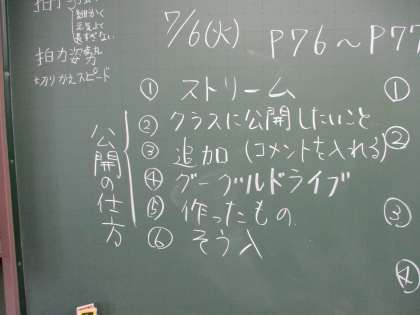 細かく
元気よく
長すぎない
拍力姿勢
切りかえスピード
7/6(火) P76～P77
① ストリーム
② クラスに公開したいこと
③ 追加(コメントを入れる)
④ グーグルドライブ
⑤ 作ったもの
⑥ そう入
公開の仕方
①
②
③
④